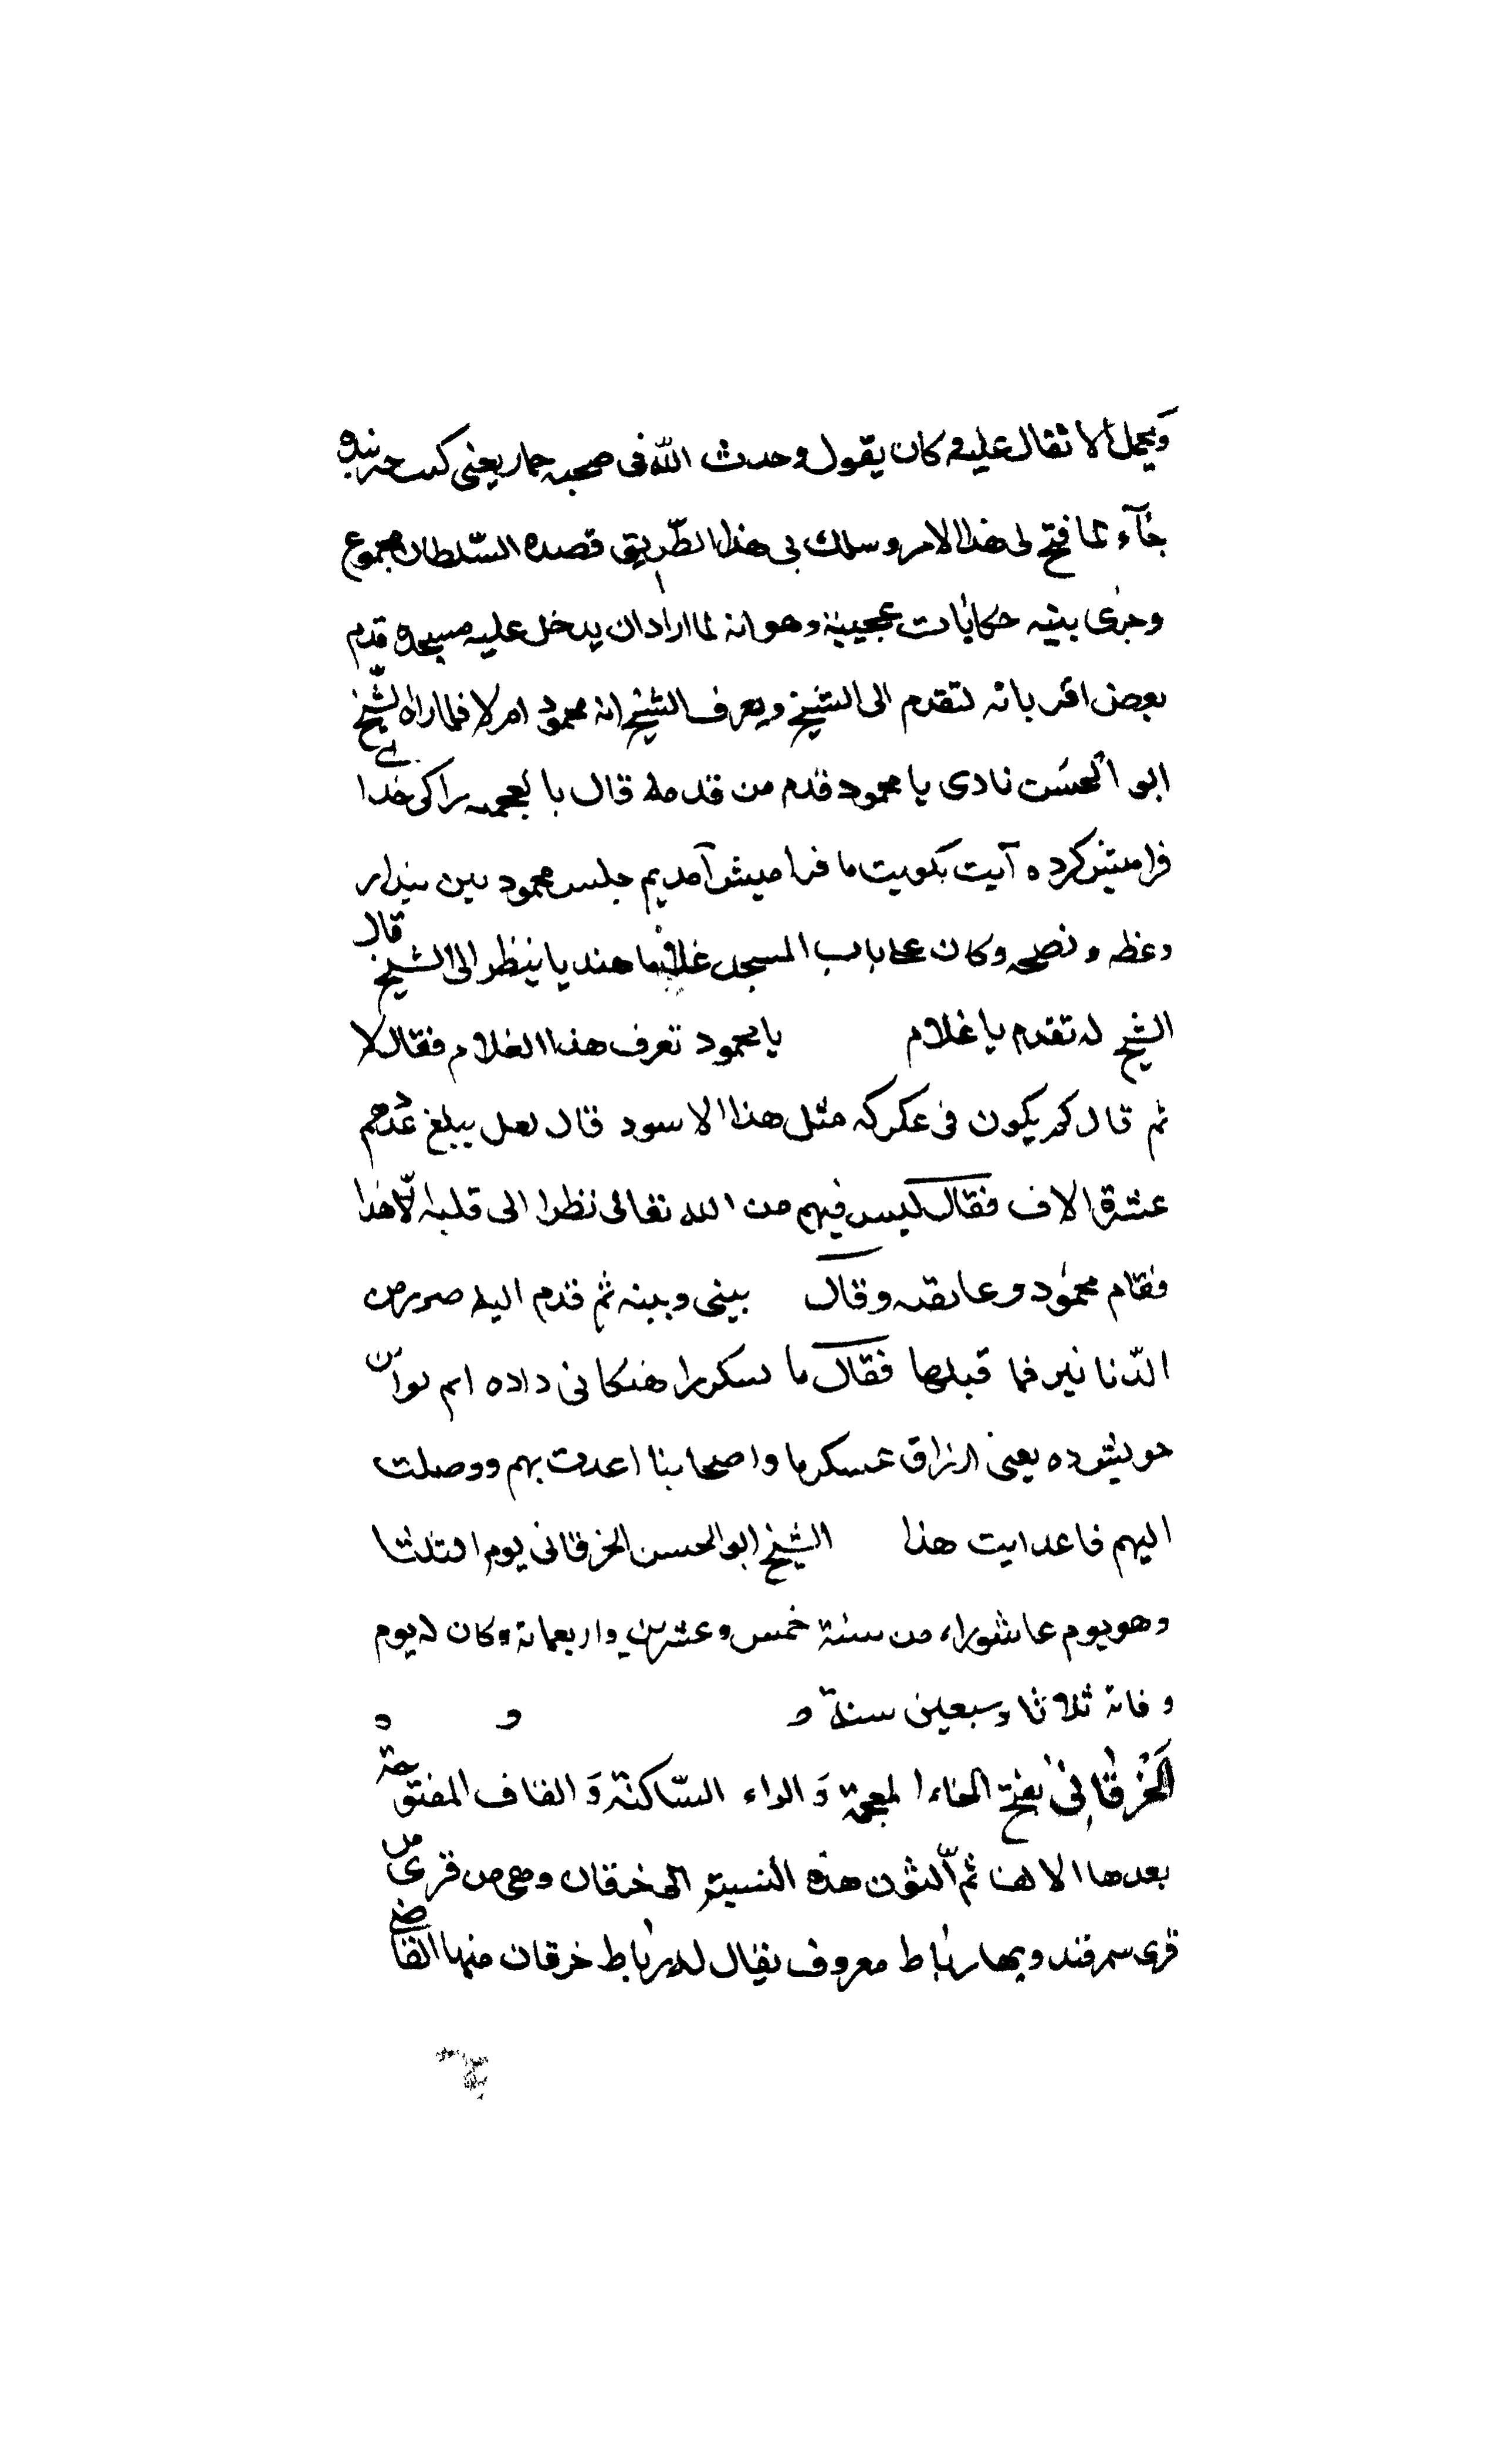 ويحمل الاثقال عليه وكان يقول وحدث الله فى صحبه حمار يعنى كنت
جاء مما فتح لى هذا الامر وسلك بى هذا الطريق قصده السلطان
وجرى بينه حكايات عجيبة وهو انه لما اراد ان يدخل عليه مسجده قدم
بعض اقربائه لتقدم الى الشيخ ويعرف الشيخ انه محمود ام لا فلما راه الشيخ
ابو الحسن نادى يا محمود قدم من قدمه قال را كى خدا
كرده آيت بكويت ما فرا ميش آمديم جلس محمود بين
وعظه ونصحه وكان على باب المسجد غلاما هنديا ينظر الى الشيخ قال
الشيخ له تقدم يا غلام يا محمود تعرف هذا الغلام فقال لا
ثم قال كم يكون فى عكركه مثل هذا الاسود قال لعل يبلغ عددهم
عشرة الاف فقال ليس فيهم من الله تعالى نظر الى قلبه الا هذا
فقام محمود وعانقه وقال بينى وبينه ثم قدم اليه صرر من
الدنانير فما قبلها فقال ما داده ايم
يعنى ارزاق عسكرها واصحابنا اعدت بهم ووصلت
اليهم فاعد ايت هذا الشيخ ابو الحسن الخرقانى يوم الثلثا
وهو يوم عاشوراء من سنة خمس وعشرين واربعمائة وكان له يوم
وفاته ثلاثا وسبعين سنة ه ه ه
الخرقانى بفتح الخاء المعجمة والراء الساكنة والقاف المفتوحة
بعدها الالف ثم النون هذه النسبة الى خرقان وهى من قرى من
قرى سمرقند وبها رباط معروف يقال له رباط خرقان منها القاضى